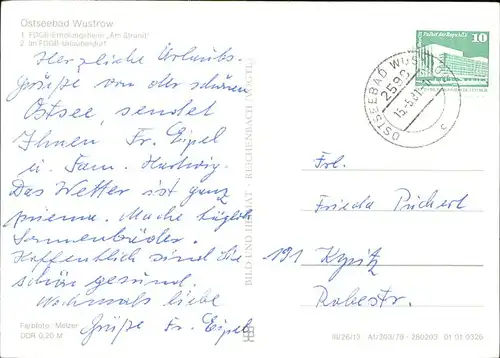 Ostseebad Wustrow
1 FDGB-Erholungsheim „Am Strand“
2 Im FDGB-Urlauberdorf
Herzliche Urlaubs-
grüße von der schönen
Ostsee, sendet
Ihnen Fr. Eipel
u. Fam. Hartwig.
Das Wetter ist ganz
prima. Mache täglich
Sonnenbäder.
Hoffentlich sind Sie
schön gesund.
Nochmals liebe
Grüße Fr. Eipel
Farbfoto: Melzer
DDR 0,20 M
BILD UND HEIMAT REICHENBACH
10
Palast der Republik
OSTSEEBAD WUSTROW
2592
15.-5.81
c
Frl.
Frieda Püchert
191 Kyritz
Robestr.
III/26/13 A1/203/79 280203 01 01 0325